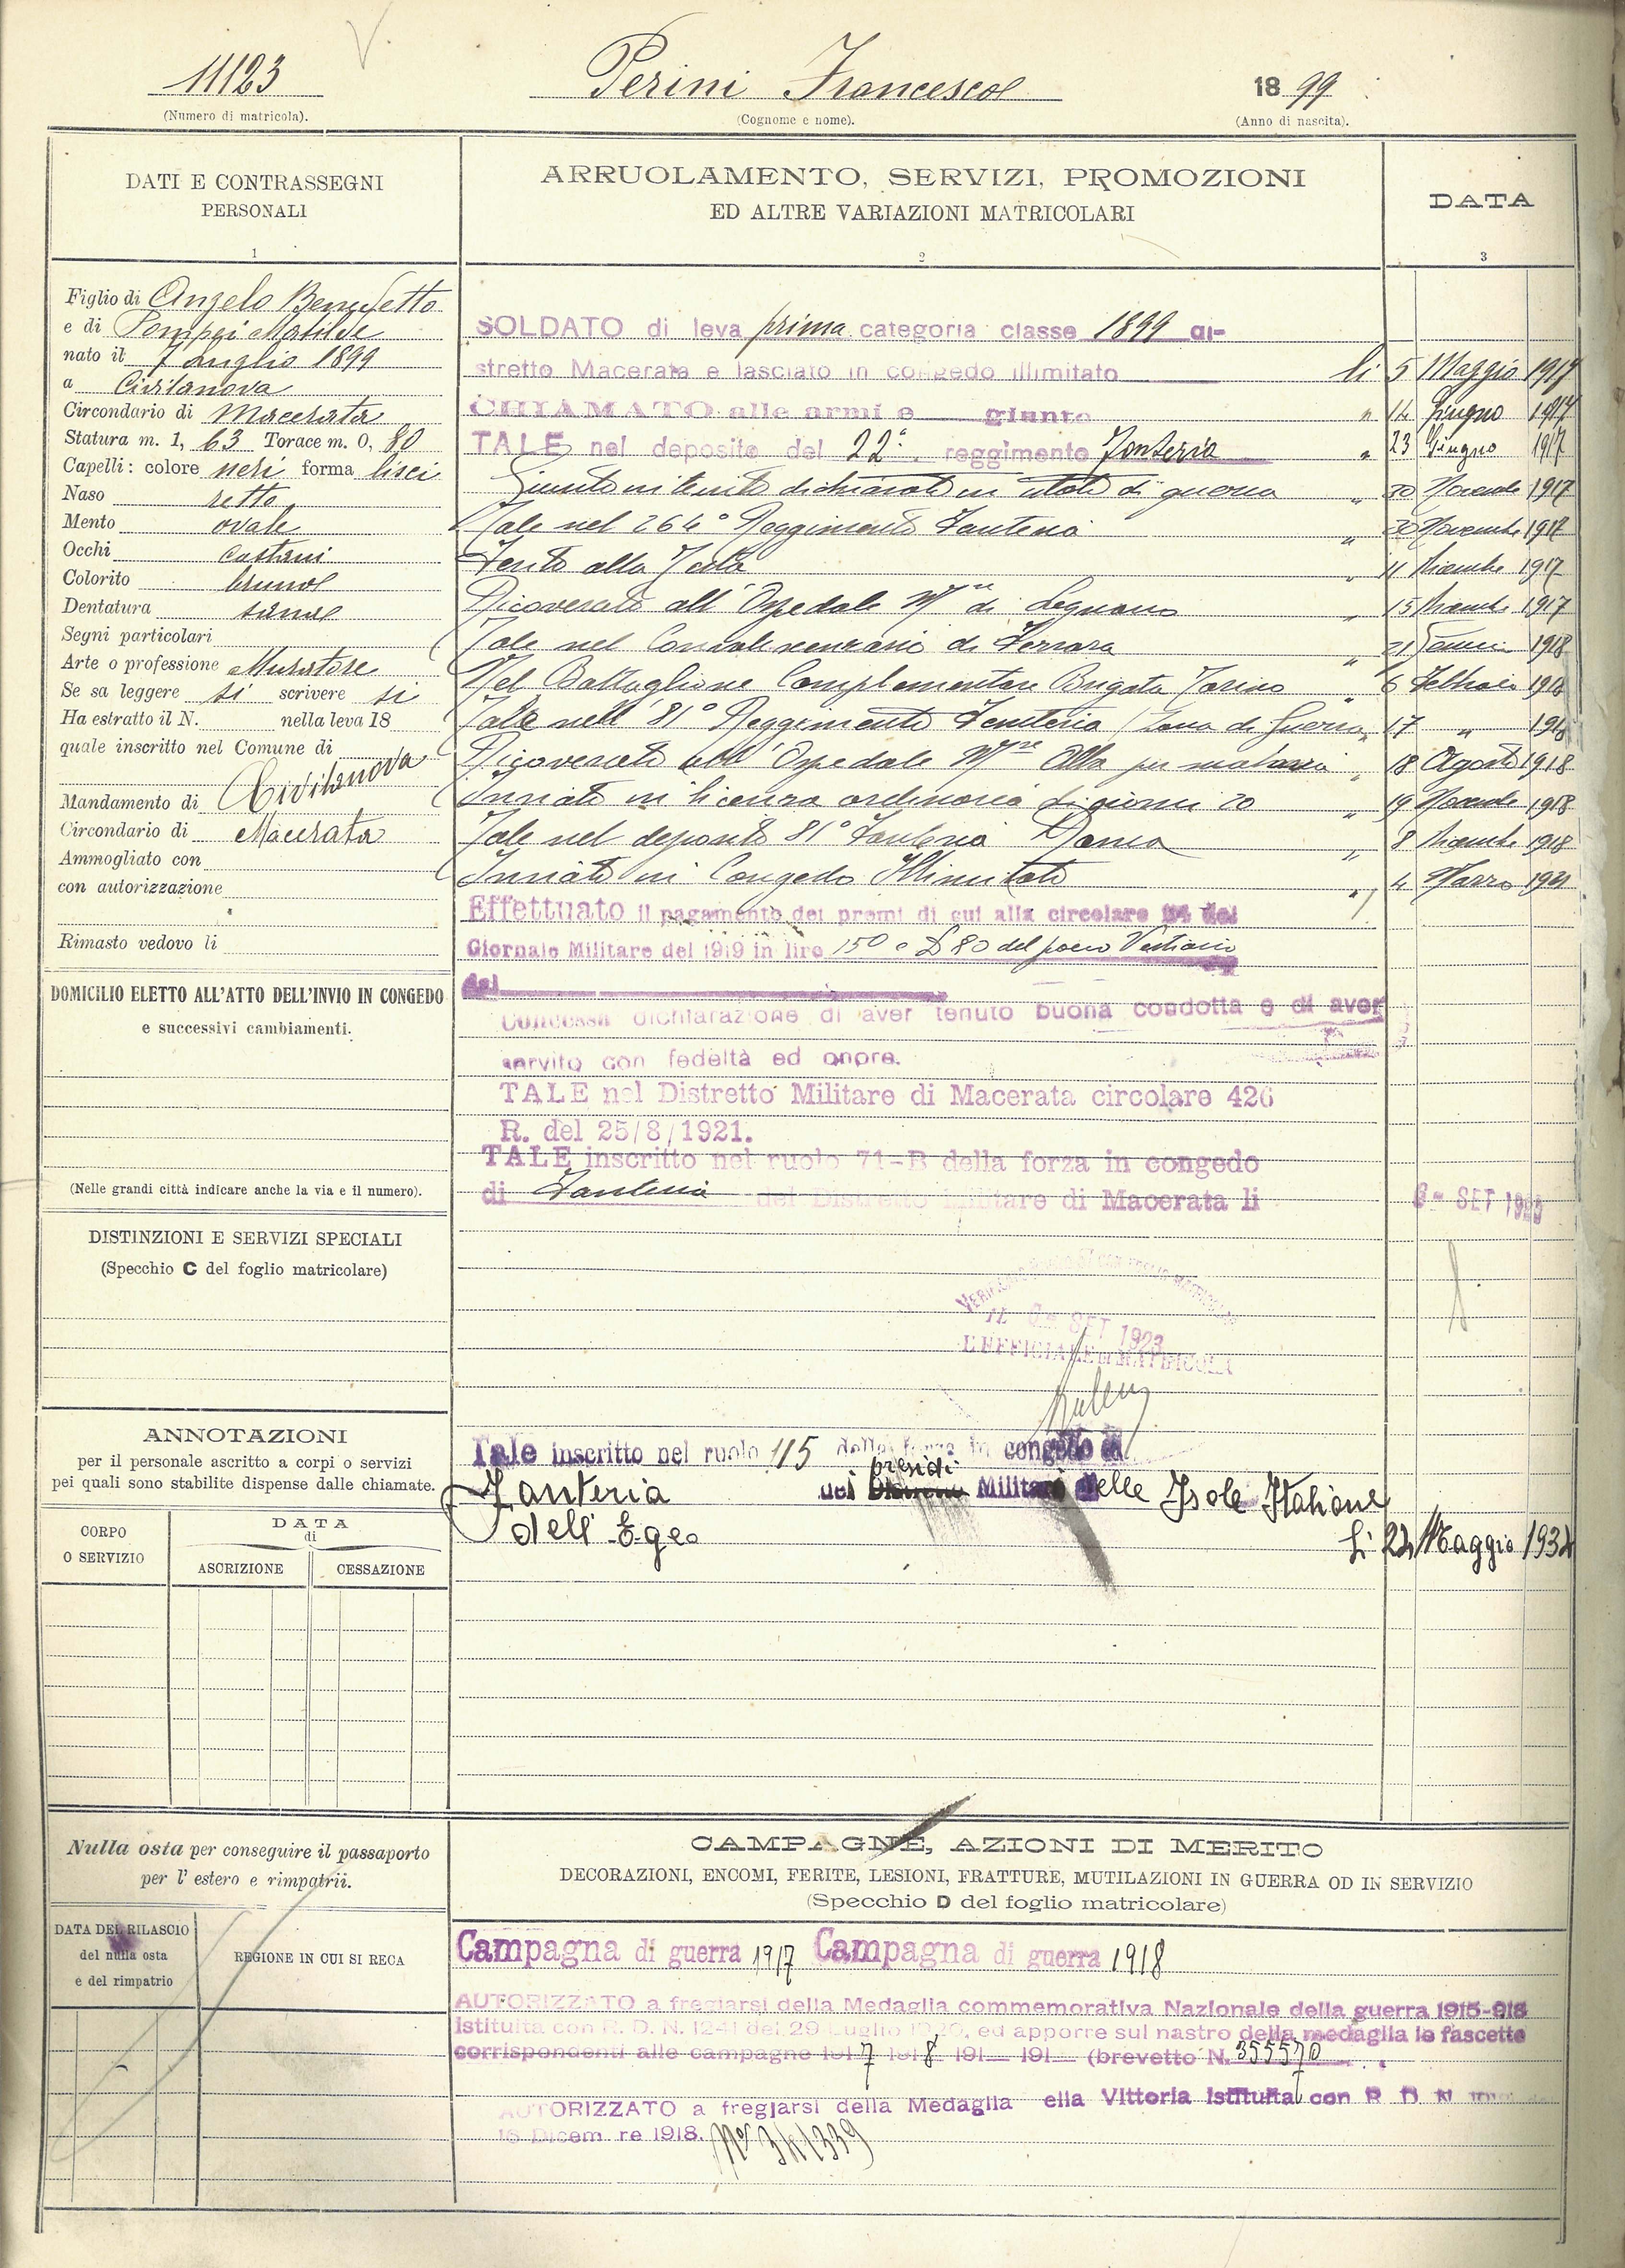 11123
(Numero di matricola).
Perini Francesco
(Cognome e nome).
18 99
(Anno di nascita).
DATI E CONTRASSEGNI
PERSONALI
1
Figlio di Angelo Benedetto
e di Pompei Matilde
nato il 7 Luglio 1899
a Civitanova
Circondario di Macerata
Statura m. 1, 63 Torace m. 0, 80
Capelli: colore neri forma lisci
Naso retto
Mento ovale
Occhi castani
Colorito bruno
Dentatura sana
Segni particolari
Arte o professione Muratore
Se sa leggere si scrivere si
Ha estratto il N. nella leva 18
quale inscritto nel Comune di
Civitanova
Mandamento di
Circondario di Macerata
Ammogliato con
con autorizzazione
Rimasto vedovo li
DOMICILIO ELETTO ALL'ATTO DELL'INVIO IN CONGEDO
e successivi cambiamenti.
(Nelle grandi città indicare anche la via e il numero).
DISTINZIONI E SERVIZI SPECIALI
(Specchio C del foglio matricolare)
ANNOTAZIONI
per il personale ascritto a corpi o servizi
pei quali sono stabilite dispense dalle chiamate.
CORPO
O SERVIZIO
DATA
di
ASCRIZIONE
CESSAZIONE
ARRUOLAMENTO, SERVIZI, PROMOZIONI
ED ALTRE VARIAZIONI MATRICOLARI
2
DATA
3
SOLDATO di leva prima categoria classe 1899 di-
stretto Macerata e lasciato in congedo illimitato li 5 Maggio 1917
CHIAMATO alle armi e giunto " 14 Giugno 1917
TALE nel deposito del 22° reggimento Fanteria " 23 Giugno 1917
Giunto in territo dichiarato in stato di guerra " 30 Novembre 1917
Tale nel 264° Reggimento Fanteria " 30 Novembre 1917
Ferito alla Testa " 11 Dicembre 1917
Ricoverato all'Ospedale Mre di Legnano " 15 Dicembre 1917
Tale nel Convalescenzario di Ferrara " 21 Gennaio 1918
Nel Battaglione Complementare Brigata Torino " 6 Febbraio 1918
Tale nell' 81° Reggimento Fanteria (Zona di Guerra) 17 " 1918
Ricoverato all' Ospedale Mre Alba per malaria " 18 Agosto 1918
Inviato in licenza ordinaria di giorni 20 " 19 Novembre 1918
Tale nel deposito 81° Fanteria Roma " 8 Dicembre 1918
Inviato in Congedo Illimitato " 4 Marzo 1921
Effettuato il pagamento dei premi di cui alla circolare 114 del
Giornale Militare del 1919 in lire 150 e £ 80 del pacco Vestiario
del
Concessa dichiarazione di aver tenuto buona condotta e di aver
servito con fedeltà ed onore.
TALE nel Distretto Militare di Macerata circolare 426
R. del 25/8/1921.
TALE inscritto nel ruolo 71-B della forza in congedo
di Fanteria del Distretto Militare di Macerata li 6 - SET 1923
IL 6 - SET 1923
L'UFFICIALE DI MATRICOLA
Tale inscritto nel ruolo 115 della forza in congedo di
Fanteria dei presidi Militari delle Isole Italiane
dell'Egeo li 22 Maggio 1934
Nulla osta per conseguire il passaporto
per l'estero e rimpatrii.
DATA DEL RILASCIO
del nulla osta
e del rimpatrio
REGIONE IN CUI SI RECA
CAMPAGNE, AZIONI DI MERITO
DECORAZIONI, ENCOMI, FERITE, LESIONI, FRATTURE, MUTILAZIONI IN GUERRA OD IN SERVIZIO
(Specchio D del foglio matricolare)
Campagna di guerra 1917 Campagna di guerra 1918
AUTORIZZATO a fregiarsi della Medaglia commemorativa Nazionale della guerra 1915-918
istituita con R. D. N. 1241 del 29 Luglio 1920, ed apporre sul nastro della medaglia le fascette
corrispondenti alle campagne 1917 1918 191 191 (brevetto N. 355570
AUTORIZZATO a fregiarsi della Medaglia ella Vittoria istituita con R D N
16 Dicem re 1918.